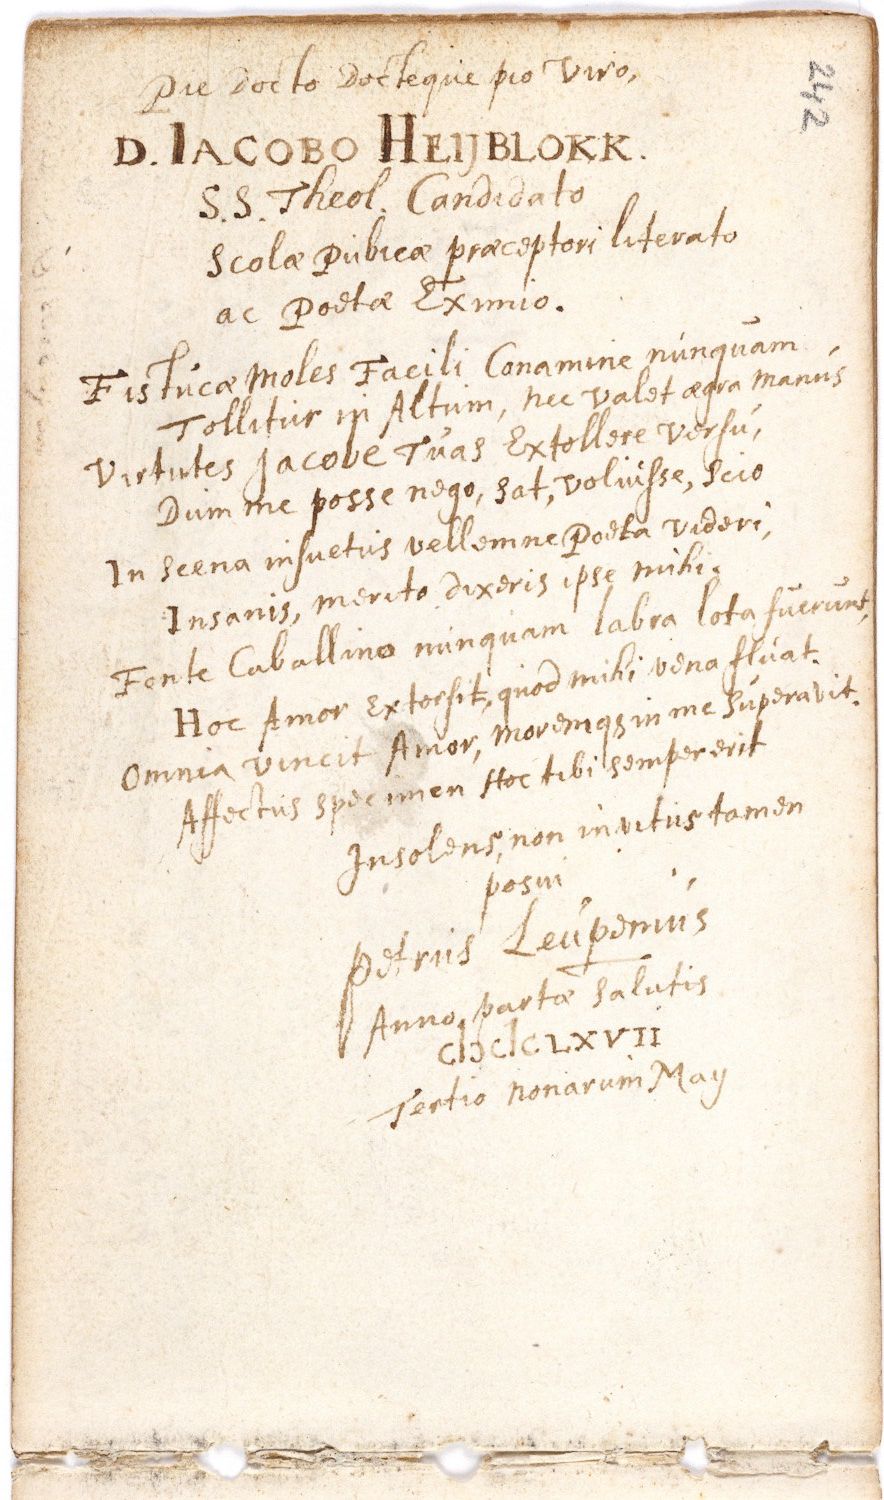 242
Pie docto docteque pio Viro,
D. IACOBO HEIJBLOKK.
S.S. Theol. Candidato
Scolæ Pubicæ præceptori literato
ac Poetæ Eximio.
Fistucæ moles Facili Conamine nunquam
Tollitur in Altum, nec valet ægra manus
Virtutes Jacobe Tuas Extollere versu,
Dum me posse nego, sat, voluisse, scio
In scena insuetus vellemne Poeta videri,
Insanis, merito dixeris ipse mihi.
Fonte Caballino nunquam labra lota fuerunt,
Hoc Amor extorsit, quod mihi vena fluat.
Omnia vincit Amor, moremq3 in me superavit.
Affectus specimen Hoc tibi semper erit
Insolens, non invitus tamen
posui
Petrus Leupenius
Anno partæ salutis
CIƆCIↃCLXVII
Tertio nonarum May